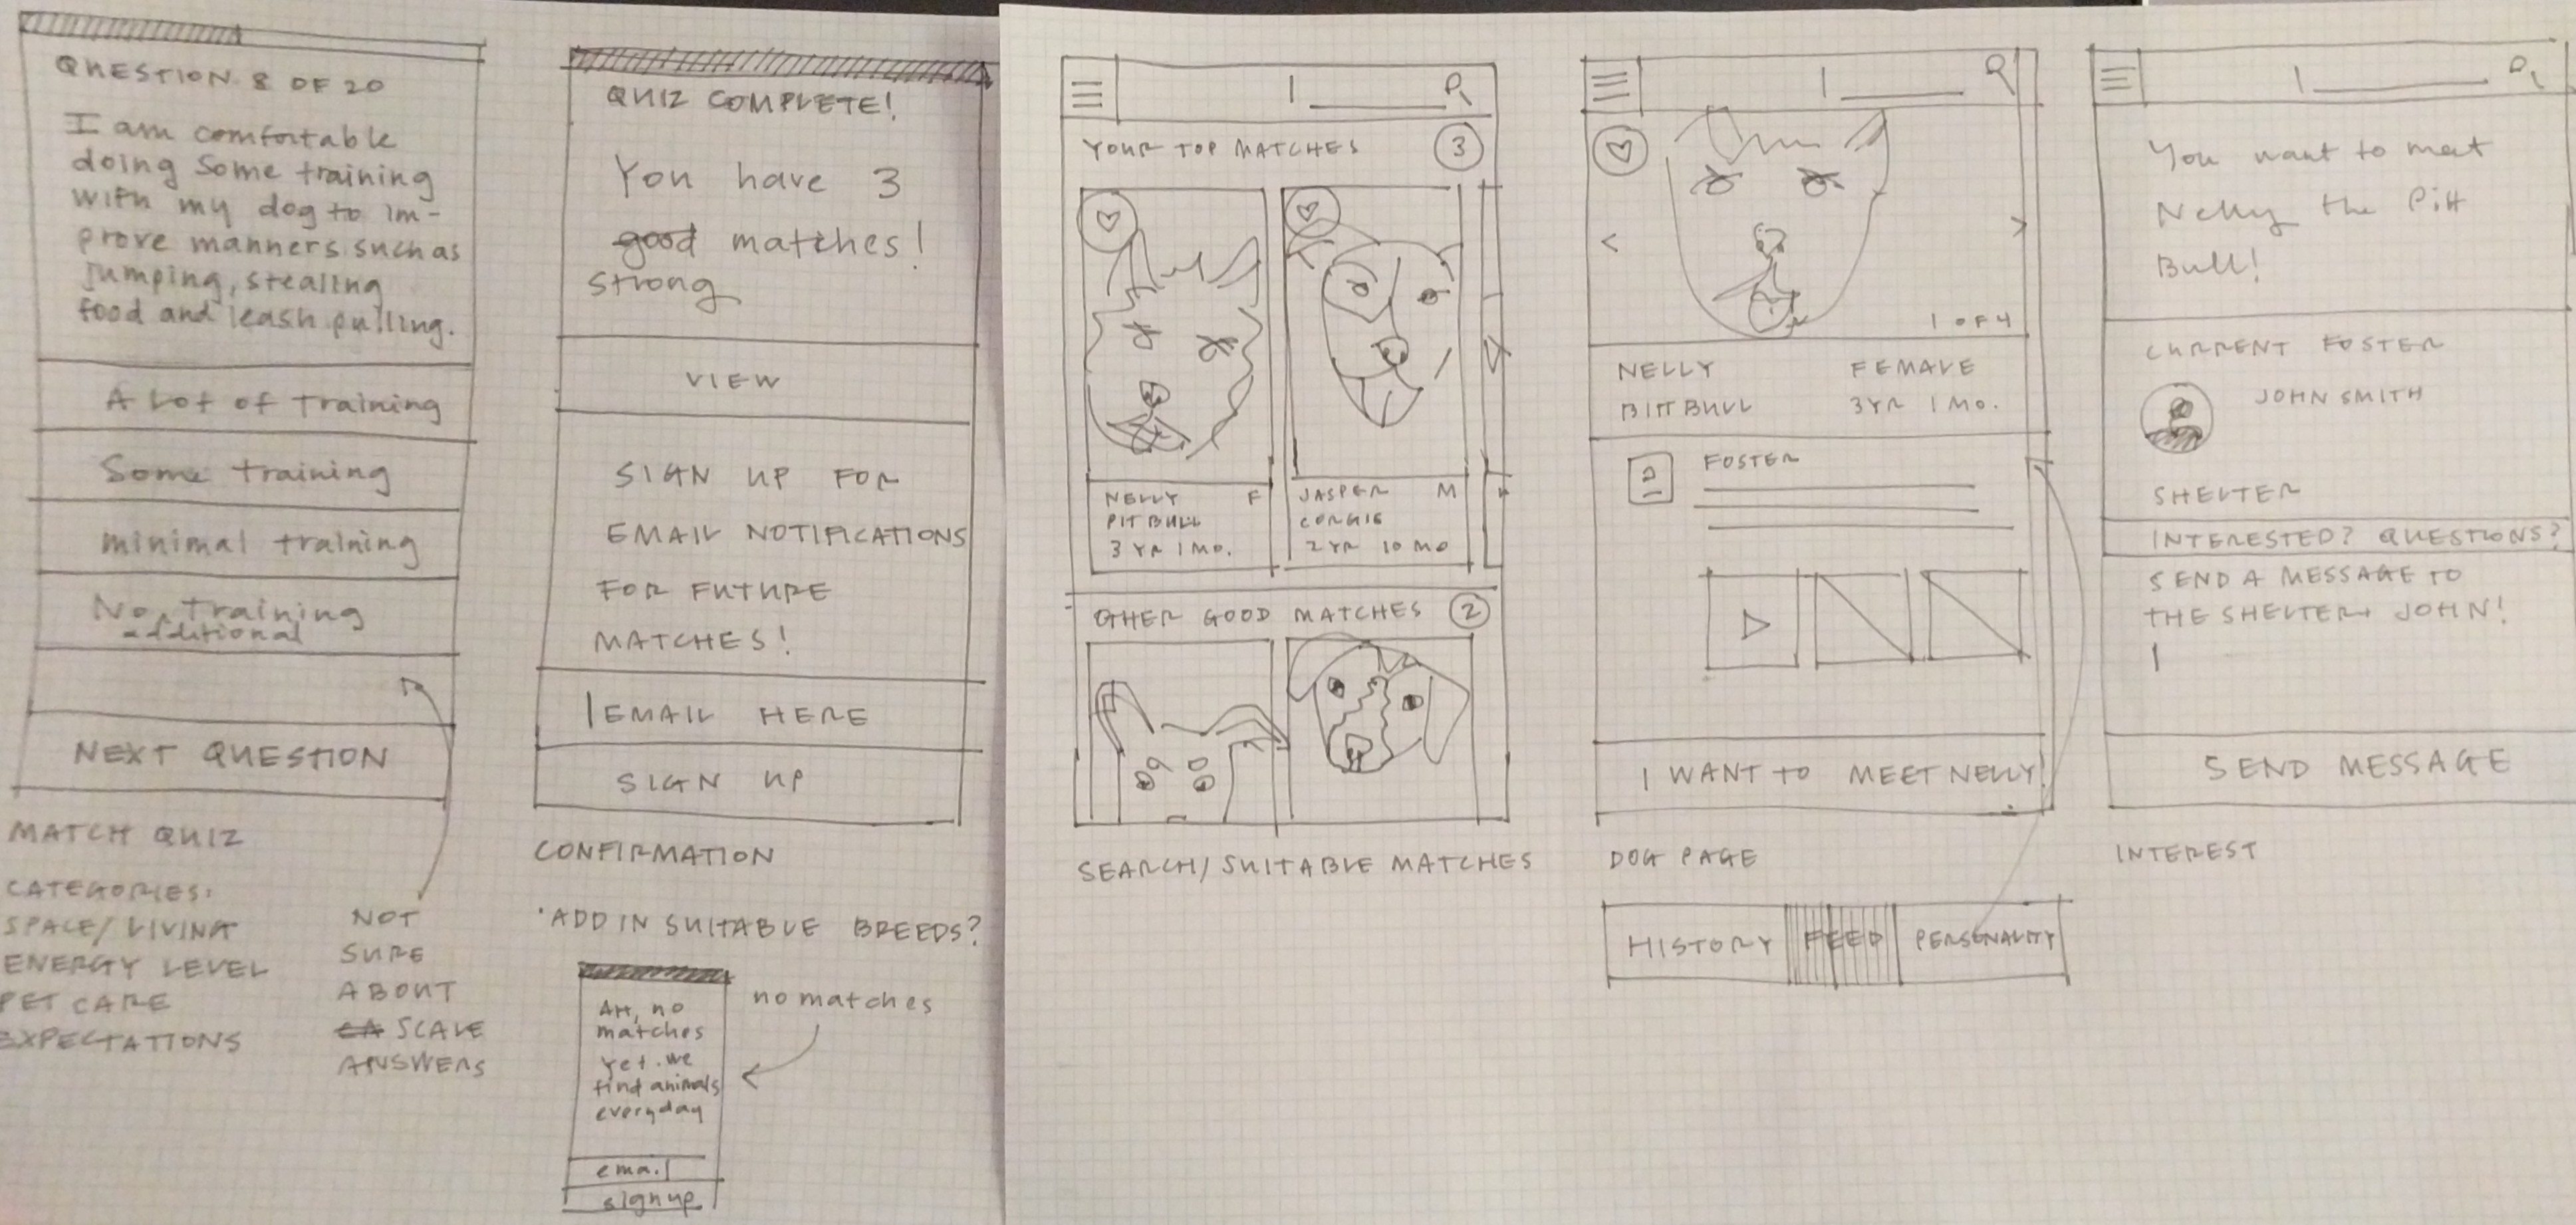 QUESTION 8 OF 20
I am comfortable
doing some training
with my dog to im-
prove manners such as
jumping, stealing
food and leash pulling.
A Lot of Training
Some training
minimal training
No training
additional
NEXT QUESTION
MATCH QUIZ
CATEGORIES:
SPACE/LIVING
ENERGY LEVEL
PET CARE
EXPECTATIONS
NOT
SURE
ABOUT
EA SCALE
ANSWERS
QUIZ COMPLETE!
You have 3
good matches!
strong
VIEW
SIGN UP FOR
EMAIL NOTIFICATIONS
FOR FUTURE
MATCHES!
EMAIL HERE
SIGN UP
CONFIRMATION
*ADD IN SUITABLE BREEDS?
no matches
Ah, no
matches
yet. we
find animals
everyday
email
signup
YOUR TOP MATCHES 3
NELLY F
PIT BULL
3 YR 1 MO.
JASPER M
CORGIE
2 YR 10 MO
OTHER GOOD MATCHES 2
SEARCH/SUITABLE MATCHES
< >
1 OF 4
NELLY FEMALE
PITT BULL 3 YR 1 MO.
FOSTER
I WANT TO MEET NELLY!
DOG PAGE
HISTORY FEED PERSONALITY
You want to meet
Nelly the Pitt
Bull!
CURRENT FOSTER
JOHN SMITH
SHELTER
INTERESTED? QUESTIONS?
SEND A MESSAGE TO
THE SHELTER + JOHN!
SEND MESSAGE
INTEREST